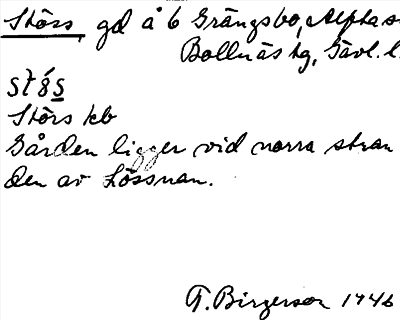 Störs, gd å 6 Grängsbo, Alfta s
Bollnäs tg, Gävl. l.
Störs kb
Gården ligger vid norra stran
den av Lössnan.
T. Birgerson 1946